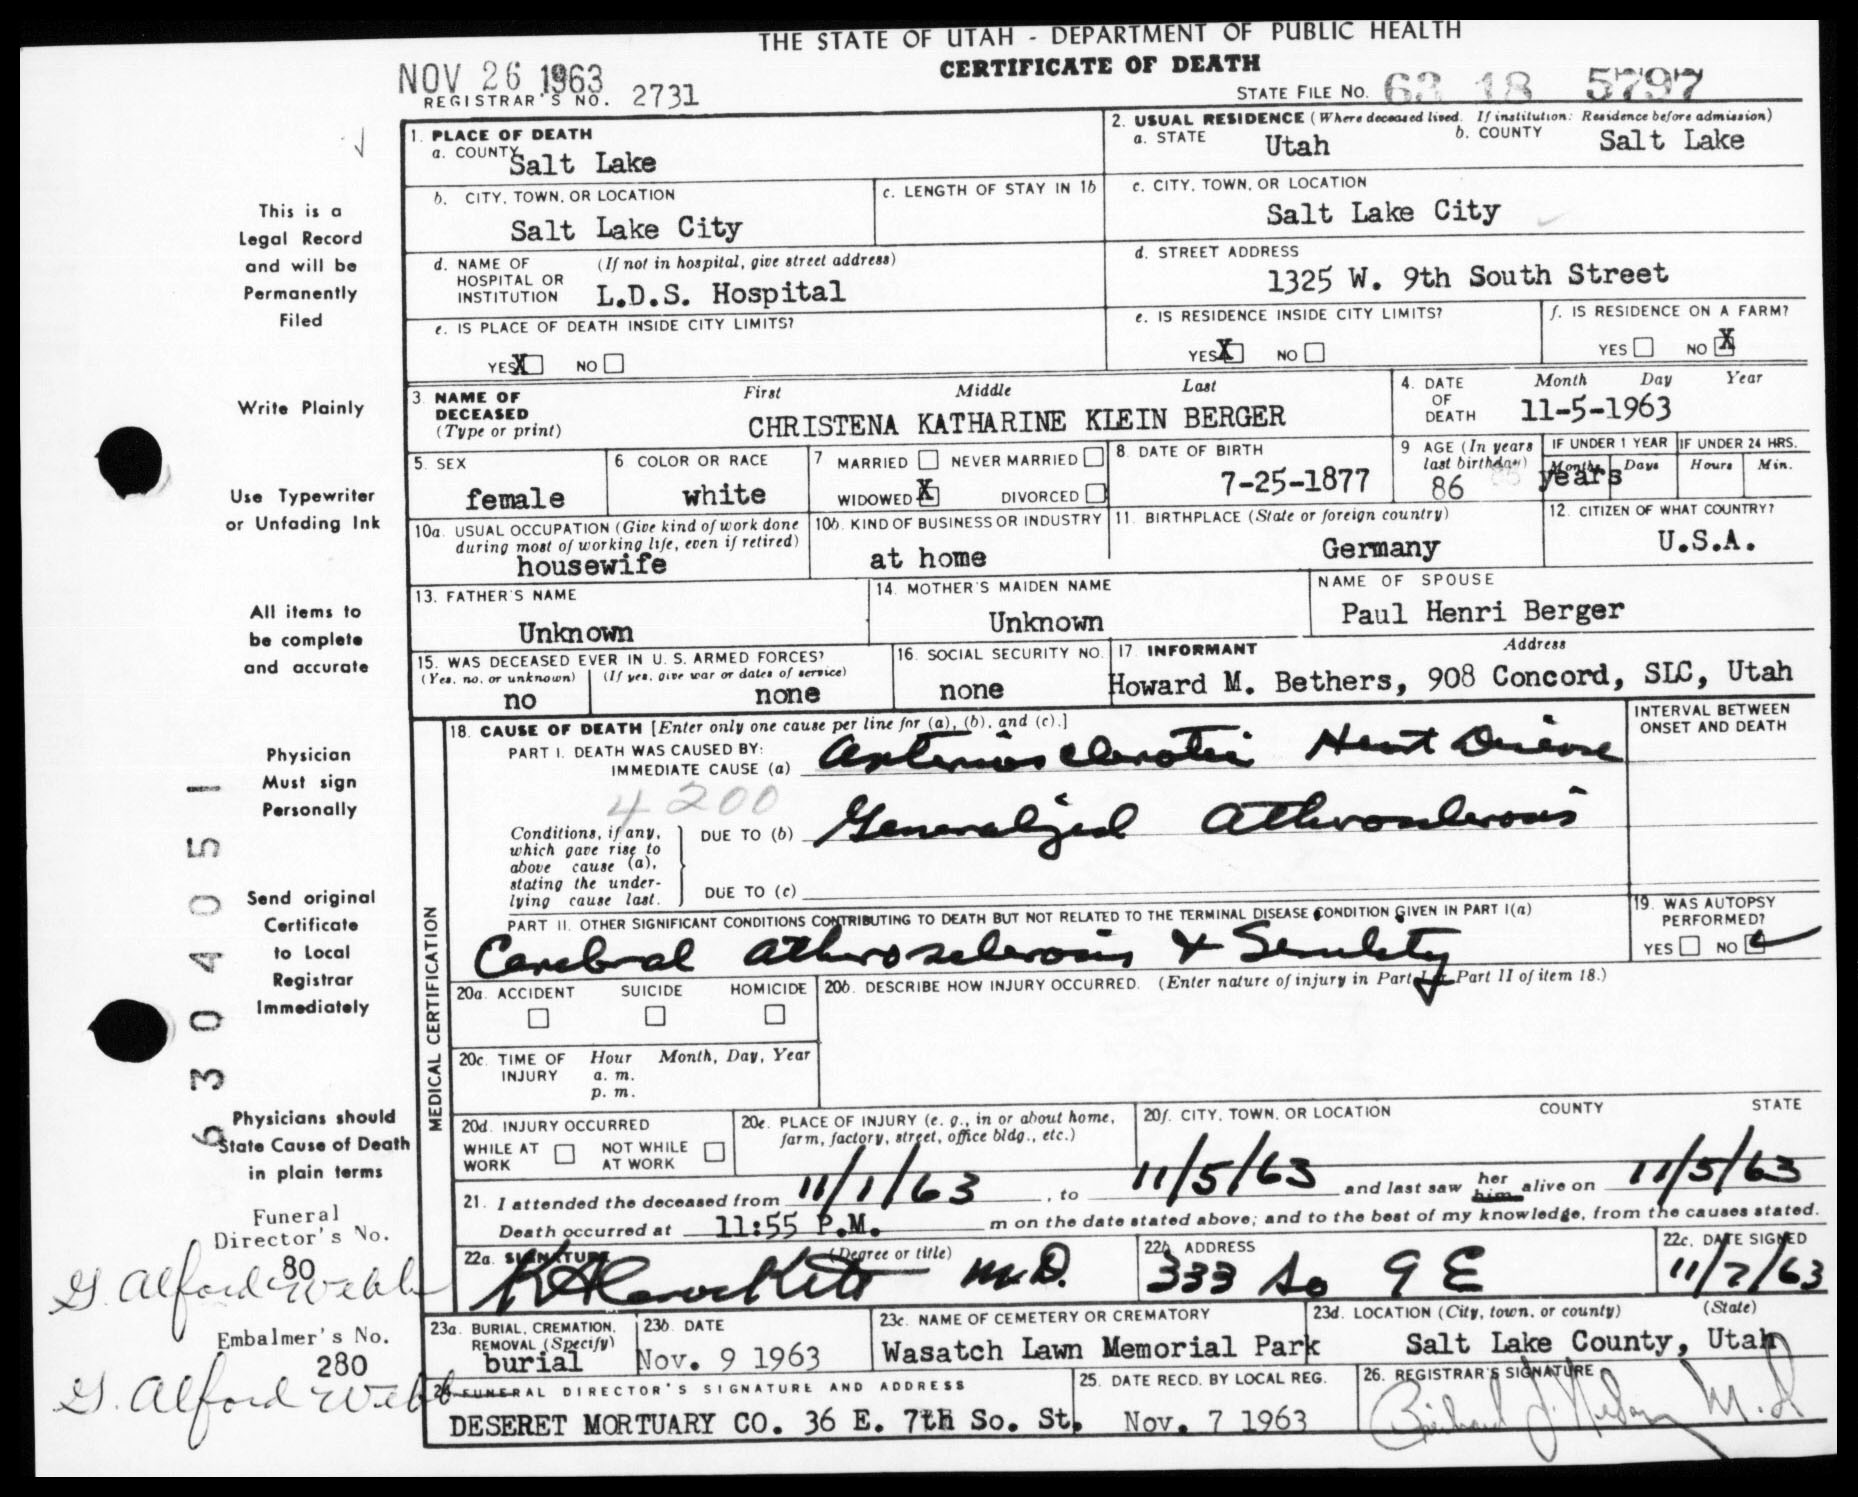 THE STATE OF UTAH - DEPARTMENT OF PUBLIC HEALTH
CERTIFICATE OF DEATH
NOV 26 1963
REGISTRAR'S NO. 2731
STATE FILE NO. 63 18 5797
This is a
Legal Record
and will be
Permanently
Filed
Write Plainly
Use Typewriter
or Unfading Ink
All items to
be complete
and accurate
Physician
Must sign
Personally
Send original
Certificate
to Local
Registrar
Immediately
Physicians should
State Cause of Death
in plain terms
Funeral
Director's No.
80
G. Alford Webb
Embalmer's No.
280
G. Alford Webb
6304051
1. PLACE OF DEATH
a. COUNTY
Salt Lake
b. CITY, TOWN, OR LOCATION
Salt Lake City
c. LENGTH OF STAY IN 1b
d. NAME OF (If not in hospital, give street address)
HOSPITAL OR
INSTITUTION L.D.S. Hospital
e. IS PLACE OF DEATH INSIDE CITY LIMITS?
YES X NO
2. USUAL RESIDENCE (Where deceased lived. If institution: Residence before admission)
a. STATE Utah b. COUNTY Salt Lake
c. CITY, TOWN, OR LOCATION
Salt Lake City
d. STREET ADDRESS
1325 W. 9th South Street
e. IS RESIDENCE INSIDE CITY LIMITS?
YES X NO
f. IS RESIDENCE ON A FARM?
YES NO X
3. NAME OF DECEASED
(Type or print)
First Middle Last
CHRISTENA KATHARINE KLEIN BERGER
4. DATE OF DEATH
Month Day Year
11-5-1963
5. SEX
female
6. COLOR OR RACE
white
7 MARRIED NEVER MARRIED
WIDOWED X DIVORCED
8. DATE OF BIRTH
7-25-1877
9 AGE (In years
last birthday)
86 years
IF UNDER 1 YEAR
Months Days
IF UNDER 24 HRS.
Hours Min.
10a. USUAL OCCUPATION (Give kind of work done
during most of working life, even if retired)
housewife
10b. KIND OF BUSINESS OR INDUSTRY
at home
11. BIRTHPLACE (State or foreign country)
Germany
12. CITIZEN OF WHAT COUNTRY?
U.S.A.
13. FATHER'S NAME
Unknown
14. MOTHER'S MAIDEN NAME
Unknown
NAME OF SPOUSE
Paul Henri Berger
15. WAS DECEASED EVER IN U. S. ARMED FORCES?
(Yes, no, or unknown) (If yes, give war or dates of service)
no none
16. SOCIAL SECURITY NO.
none
17. INFORMANT Address
Howard M. Bethers, 908 Concord, SLC, Utah
MEDICAL CERTIFICATION
18. CAUSE OF DEATH [Enter only one cause per line for (a), (b), and (c).]
INTERVAL BETWEEN
ONSET AND DEATH
PART I. DEATH WAS CAUSED BY:
IMMEDIATE CAUSE (a) Arteriosclerotic Heart Disease
4200
Conditions, if any,
which gave rise to
above cause (a),
stating the under-
lying cause last.
DUE TO (b) Generalized Atherosclerosis
DUE TO (c)
PART II. OTHER SIGNIFICANT CONDITIONS CONTRIBUTING TO DEATH BUT NOT RELATED TO THE TERMINAL DISEASE CONDITION GIVEN IN PART I(a)
Cerebral atherosclerosis & Senility
19. WAS AUTOPSY
PERFORMED?
YES NO
20a. ACCIDENT SUICIDE HOMICIDE
20b. DESCRIBE HOW INJURY OCCURRED. (Enter nature of injury in Part I or Part II of item 18.)
20c. TIME OF INJURY
Hour Month, Day, Year
a. m.
p. m.
20d. INJURY OCCURRED
WHILE AT WORK NOT WHILE AT WORK
20e. PLACE OF INJURY (e. g., in or about home,
farm, factory, street, office bldg., etc.)
20f. CITY, TOWN, OR LOCATION COUNTY STATE
21. I attended the deceased from 11/1/63, to 11/5/63 and last saw her him alive on 11/5/63
Death occurred at 11:55 P.M. m on the date stated above; and to the best of my knowledge, from the causes stated.
22a. SIGNATURE (Degree or title)
M.D.
22b. ADDRESS
333 So 9 E
22c. DATE SIGNED
11/7/63
23a. BURIAL, CREMATION,
REMOVAL (Specify)
burial
23b. DATE
Nov. 9 1963
23c. NAME OF CEMETERY OR CREMATORY
Wasatch Lawn Memorial Park
23d. LOCATION (City, town, or county) (State)
Salt Lake County, Utah
24. FUNERAL DIRECTOR'S SIGNATURE AND ADDRESS
DESERET MORTUARY CO. 36 E. 7th So. St.
25. DATE RECD. BY LOCAL REG.
Nov. 7 1963
26. REGISTRAR'S SIGNATURE
M.D